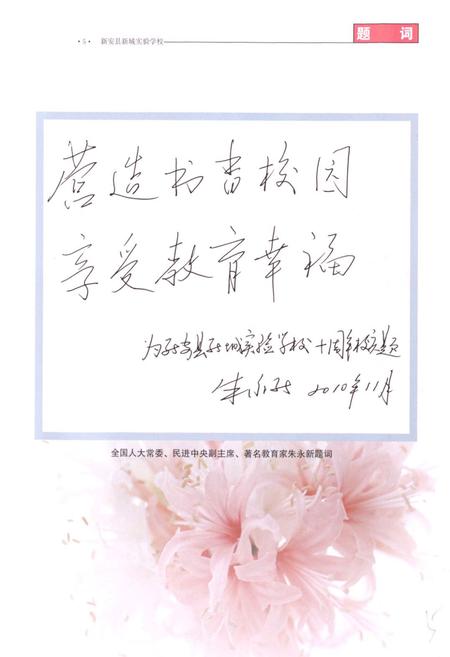 ·5· 新安县新城实验学校
题 词
营造书香校园
享受教育幸福
为新安县新城实验学校十周年校庆题
朱永新 2010年11月
全国人大常委、民进中央副主席、著名教育家朱永新题词